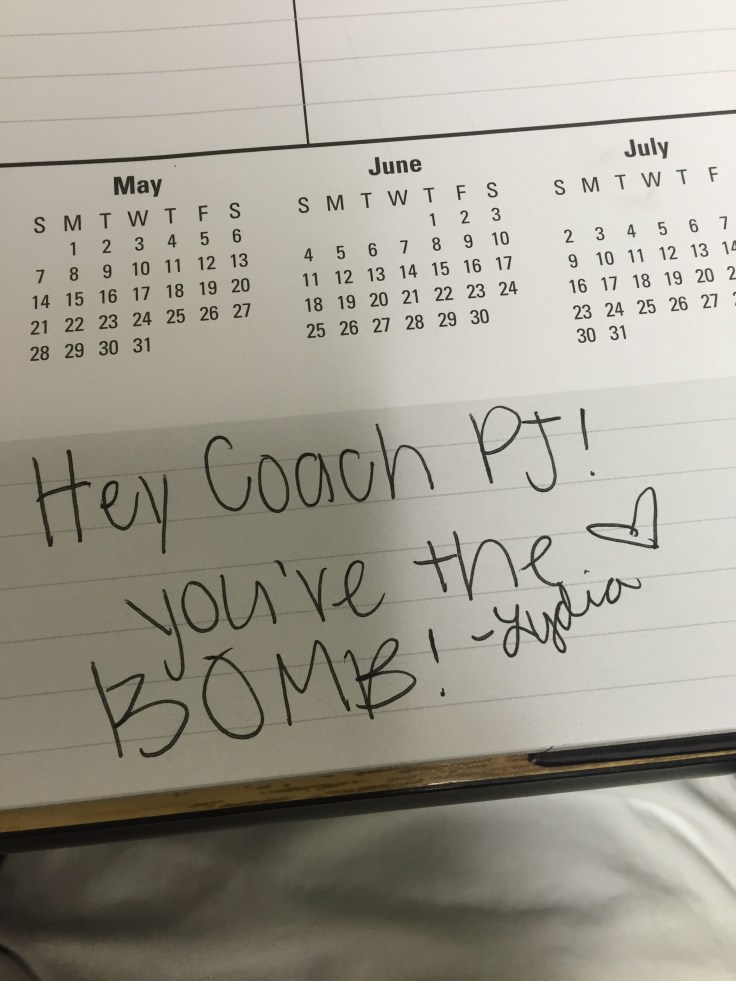 May June July
S M T W T F S S M T W T F S S M T W T F
1 2 3 4 5 6 1 2 3
7 8 9 10 11 12 13 4 5 6 7 8 9 10 2 3 4 5 6 7
14 15 16 17 18 19 20 11 12 13 14 15 16 17 9 10 11 12 13 14
21 22 23 24 25 26 27 18 19 20 21 22 23 24 16 17 18 19 20
28 29 30 31 25 26 27 28 29 30 23 24 25 26 27
30 31
Hey Coach PJ!
you've the ♡
BOMB! -Lydia